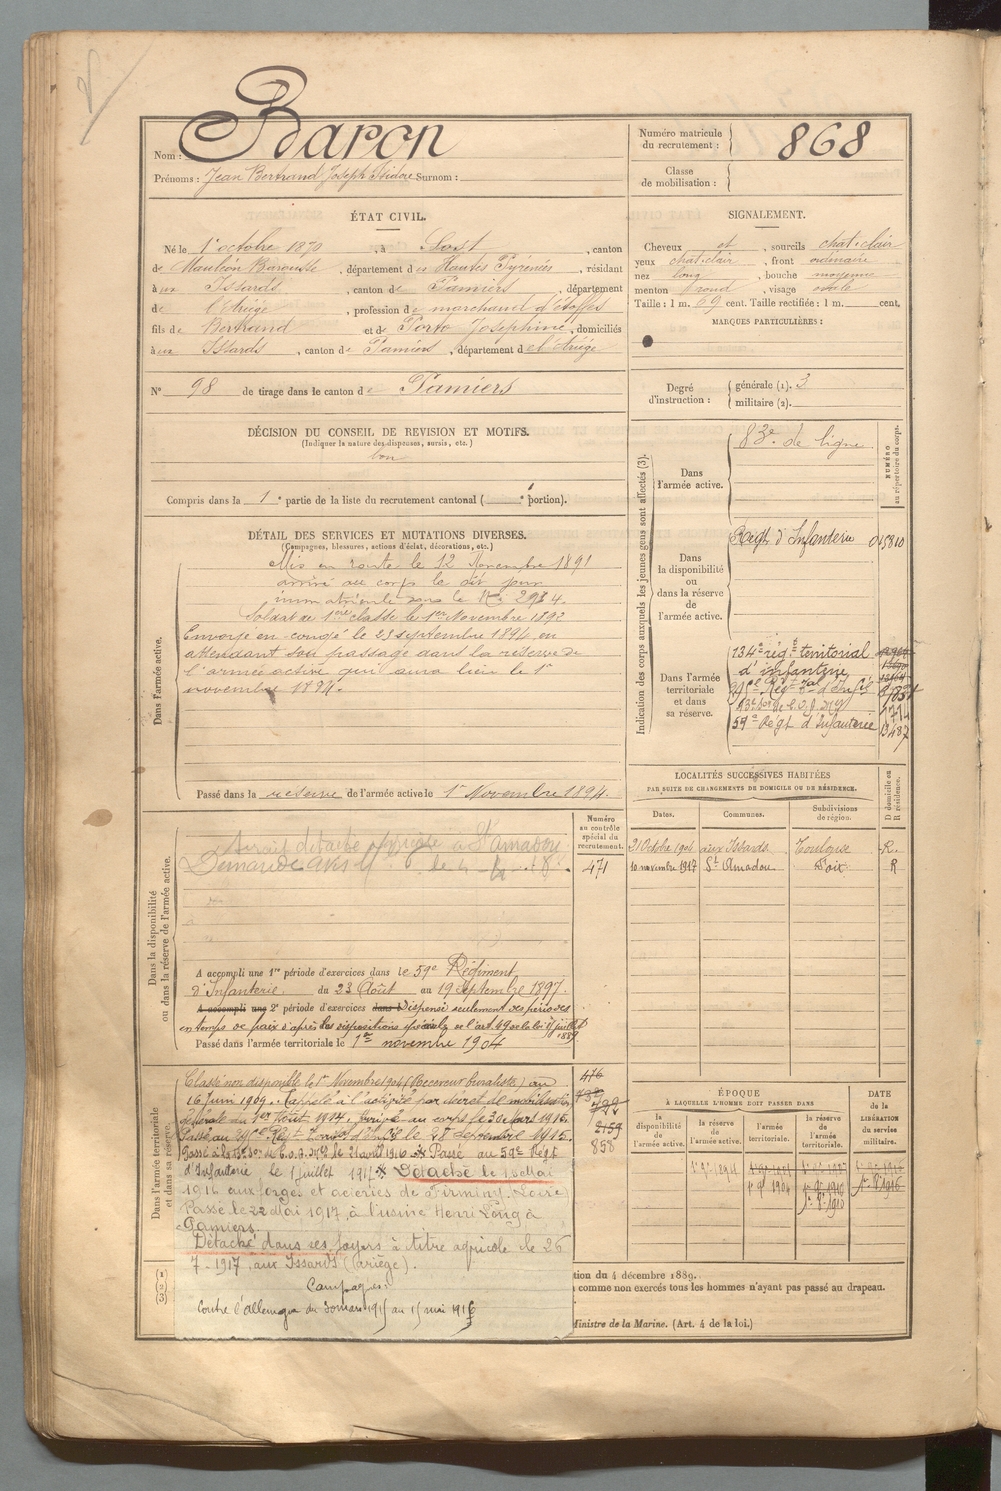 Nom : Baron
Prénoms : Jean Bertrand Joseph Isidore Surnom :
Numéro matricule du recrutement : 868
Classe de mobilisation :
ÉTAT CIVIL.
Né le 1er octobre 1870, à Sost, canton
de Mauléon Barousse, département des Hautes Pyrénées, résidant
à ux Issards, canton de Pamiers, département
de l'Ariège, profession de marchand d'étoffes
fils de Bertrand et de Porto Joséphine, domiciliés
à ux Issards, canton de Pamiers, département de l'Ariège
N° 98 de tirage dans le canton de Pamiers
SIGNALEMENT.
Cheveux et, sourcils chat. clair
yeux chat. clair, front ordinaire
nez long, bouche moyenne
menton rond, visage ovale
Taille : 1 m. 69 cent. Taille rectifiée : 1 m. cent.
MARQUES PARTICULIÈRES :
Degré d'instruction : générale (1). 3
militaire (2).
DÉCISION DU CONSEIL DE REVISION ET MOTIFS.
(Indiquer la nature des dispenses, sursis, etc.)
bon
Compris dans la 1e partie de la liste du recrutement cantonal ( e portion).
DÉTAIL DES SERVICES ET MUTATIONS DIVERSES.
(Campagnes, blessures, actions d'éclat, décorations, etc.)
Dans l'armée active.
Mis en route le 12 Novembre 1891
arrivé au corps le dit jour
immatriculé sous le No 2934.
Soldat de 1ère classe le 1er Novembre 1892
Envoyé en congé le 23 septembre 1894, en
attendant son passage dans la réserve de
l'armée active qui aura lieu le 1er
novembre 1894.
Passé dans la réserve de l'armée active le 1er Novembre 1894.
Indication des corps auxquels les jeunes gens sont affectés (3).
NUMÉRO au répertoire du corps.
Dans l'armée active.
83e de ligne
Dans la disponibilité ou dans la réserve de l'armée active.
Régt d'Infanterie 015810
Dans l'armée territoriale et dans sa réserve.
134e rég.t territorial
d'infanterie
59e Régt d'Infanterie 13487
LOCALITÉS SUCCESSIVES HABITÉES
PAR SUITE DE CHANGEMENTS DE DOMICILE OU DE RÉSIDENCE.
Dates. Communes. Subdivisions de région. D domicile ou R résidence.
21 Octobre 1904 aux Issards Toulouse R.
10 novembre 1917 St Amadou Foix R
Dans la disponibilité ou dans la réserve de l'armée active.
Numéro au contrôle spécial du recrutement.
471
Serait détaché agricole à St Amadou
Demande avis
A accompli une 1re période d'exercices dans le 59e Régiment
d'Infanterie du 23 Août au 19 Septembre 1897.
A accompli une 2e période d'exercices dans le Dispensé seulement des périodes
en temps de paix d'après les dispositions spéciales de l'art. 49 de la loi juillet 1889
Passé dans l'armée territoriale le 1er novembre 1904
Dans l'armée territoriale et dans sa réserve.
Classé non disponible le 1er Novembre 1904 (Receveur buraliste) au
16 juin 1909. Rappelé à l'activité par décret de mobilisation
générale du 1er Août 1914, arrivé au corps le 30 mars 1915.
Passé au Régt Territ d'Inf le 28 septembre 1915.
Passé à le 21 avril 1916 Passé au 59e Régt
d'Infanterie le 1 juillet 1917 Détaché le Mai
1916 aux forges et aciéries de Firminy (Loire)
Passé le 22 Mai 1917, à l'usine Henri Long à
Pamiers.
Détaché dans ses foyers à titre agricole le 26
7-1917, aux Issards (Ariège).
Campagnes
Contre l'allemagne du 30 mars 1915 au 15 mai 1916
476
722
2159
858
ÉPOQUE
À LAQUELLE L'HOMME DOIT PASSER DANS
la disponibilité de l'armée active. la réserve de l'armée active. l'armée territoriale. la réserve de l'armée territoriale.
DATE de la LIBÉRATION du service militaire.
1er 9bre 1894 1er 9bre 1904 1er 9bre 1910
(1)
(2)
(3)
tion du 4 décembre 1889.
comme non exercés tous les hommes n'ayant pas passé au drapeau.
Ministre de la Marine. (Art. 4 de la loi.)